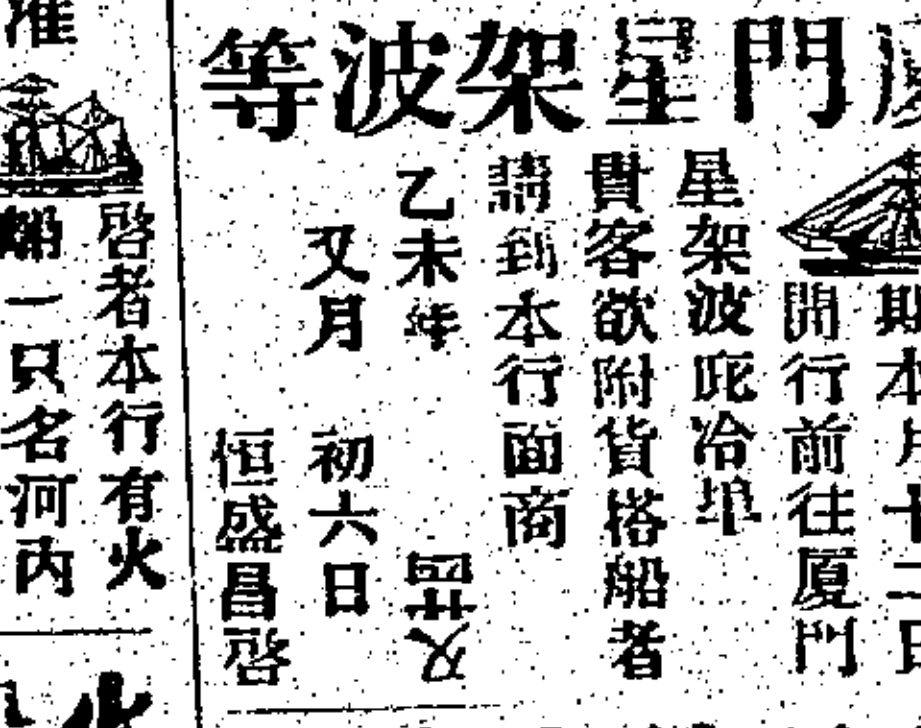 門星架波等
期本月十二日
開行前往厦門
星架波庇冷埠
貴客欲附貨搭船者
請到本行面商
乙未年
又月 初六日
恒盛昌啓
准
啓者本行有火
船一只名河內